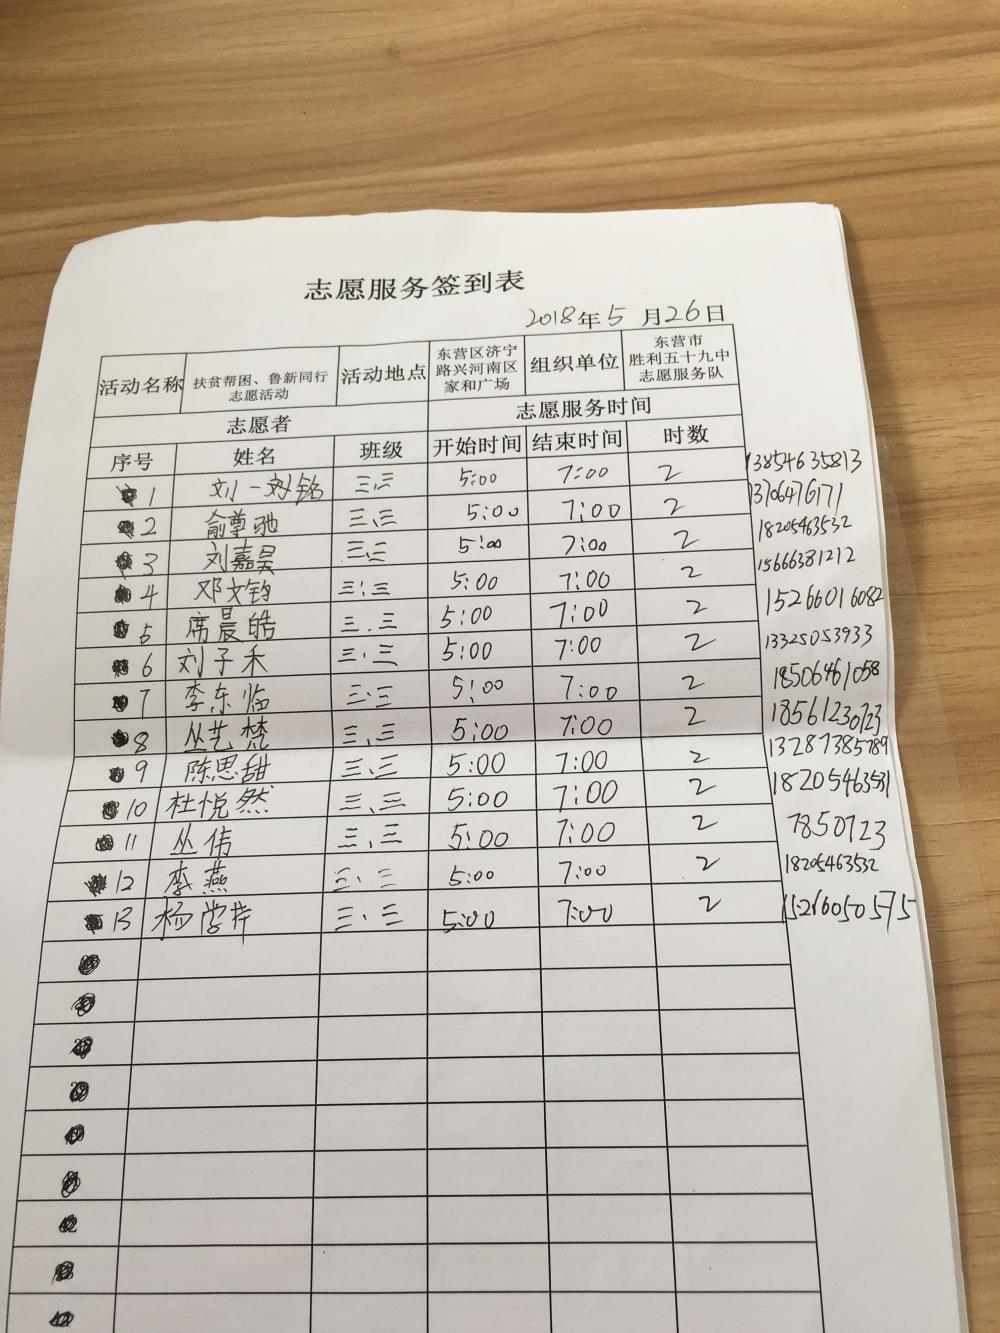 志愿服务签到表
2018年5月26日
活动名称 扶贫帮困、鲁新同行志愿活动 活动地点 东营区济宁路兴河南区家和广场 组织单位 东营市胜利五十九中志愿服务队
志愿者 志愿服务时间
序号 姓名 班级 开始时间 结束时间 时数
1 刘一刘铭 三.三 5:00 7:00 2 13854635813
2 俞尊驰 三、三 5:00 7:00 2 13706476171
3 刘嘉昊 三、三 5:00 7:00 2 18205463532
4 邓文钧 三、三 5:00 7:00 2 15666381212
5 席晨皓 三.三 5:00 7:00 2 15266016082
6 刘子禾 三、三 5:00 7:00 2 13325053933
7 李东临 三、三 5:00 7:00 2 18506461058
8 丛艺梵 三、三 5:00 7:00 2 18561230723
9 陈思甜 三、三 5:00 7:00 2 13287385789
10 杜悦然 三、三 5:00 7:00 2 18205463531
11 丛伟 三、三 5:00 7:00 2 7850723
12 李燕 三、三 5:00 7:00 2 18205463532
13 杨学芹 三、三 5:00 7:00 2 15266050575